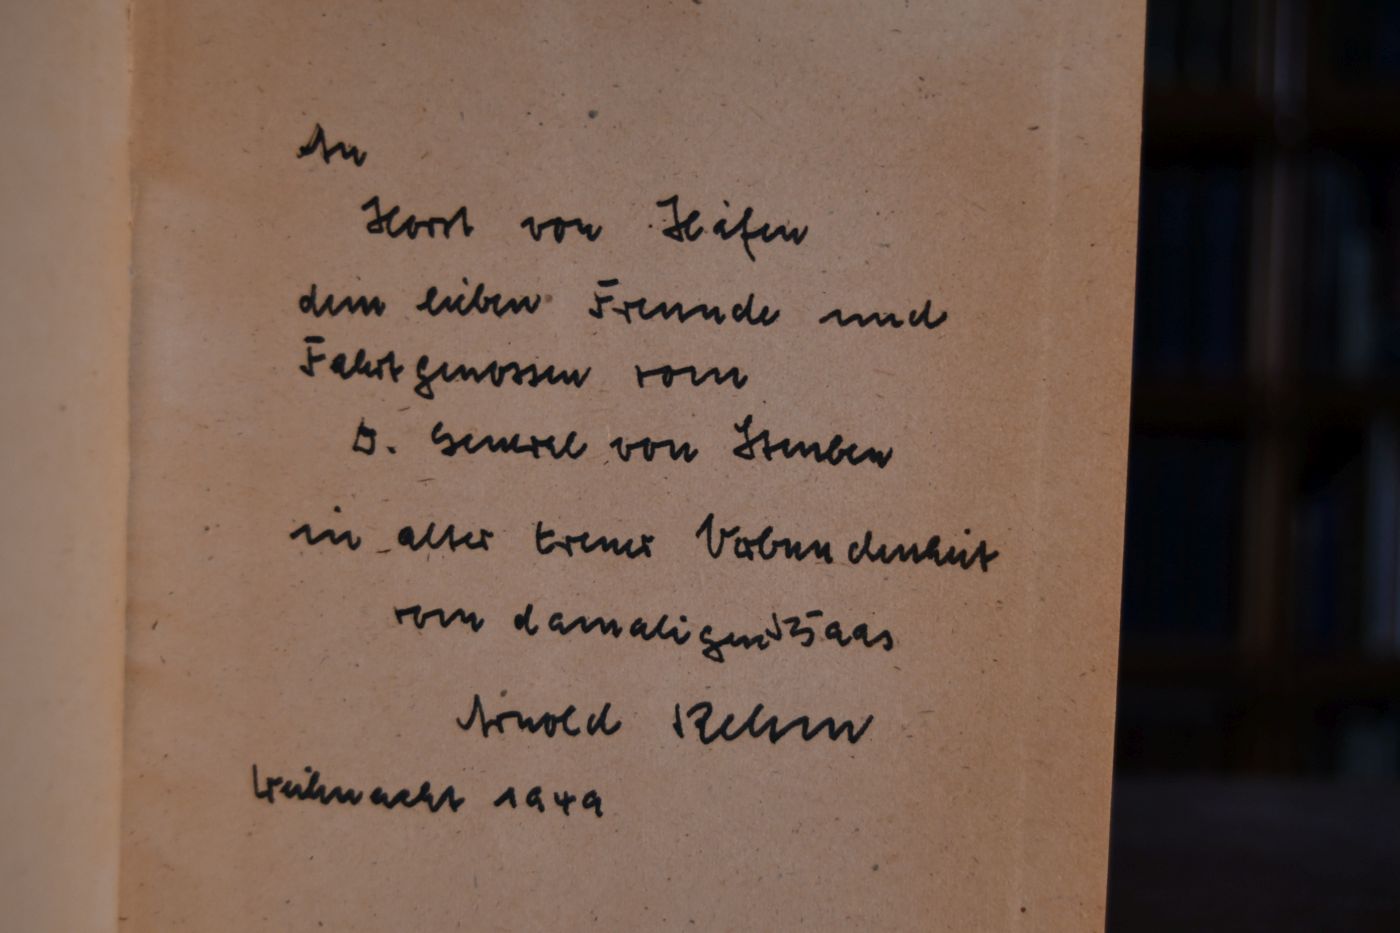 An
Horst von Hafen
dem lieben Freunde und
Fahrtgenossen vom
D. General von Steuben
in alter treuer Verbundenheit
vom damaligen
Arnold Rehm
Weihnacht 1949